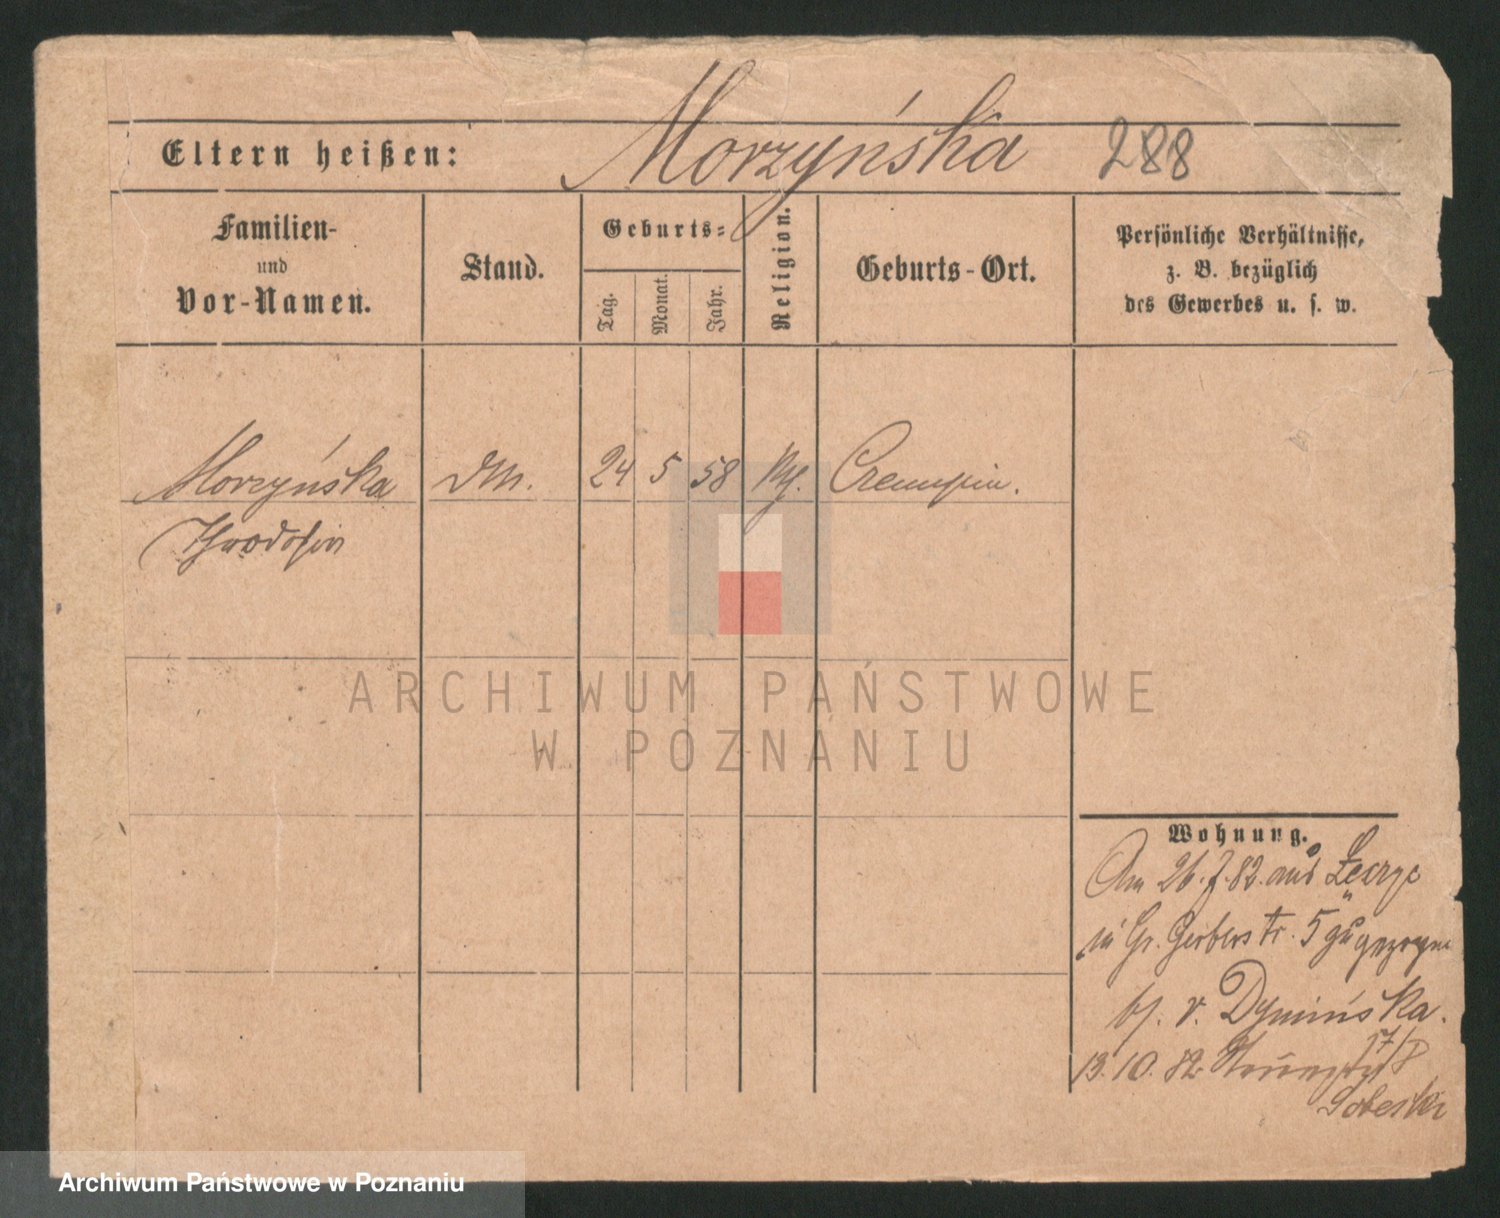 Eltern heißen:
Morzyńska
288
Familien-
und
Vor-Namen.
Stand.
Geburts-
Tag.
Monat.
Jahr.
Religion.
Geburts-Ort.
Persönliche Verhältnisse,
z. B. bezüglich
des Gewerbes u. s. w.
Morzyńska
24 5 58
Czempin.
Wohnung.
Am 26. 7. 82. aus
in Gr. Gerberstr. 5 zugezogen
bf. v. Dymińska.
13. 10. 82.
17/8
ARCHIWUM PAŃSTWOWE
W POZNANIU
Archiwum Państwowe w Poznaniu